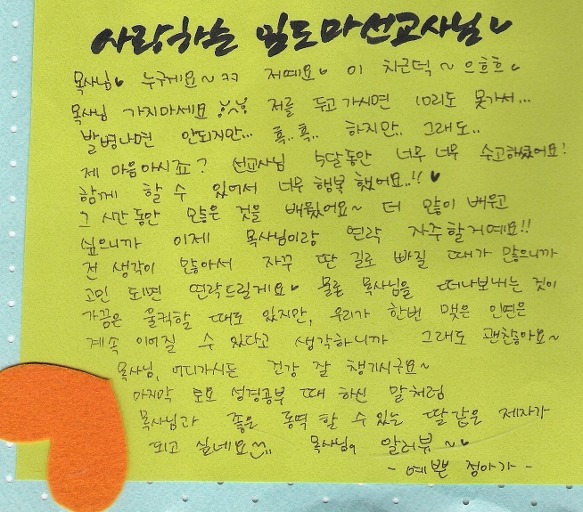 사랑하는 임도마선교사님♥
목사님♥ 누구게요~ㅋㅋ 저예요♥ 이 치근덕~으흐흐♥
목사님 가지마세요 ㅠㅠ 저를 두고가시면 10리도 못가서...
발병나면 안되지만... 흑..흑.. 하지만.. 그래도..
제 마음아시죠? 선교사님 5달동안 너무 너무 수고하셨어요!
함께 할 수 있어서 너무 행복했어요..!! ♥
그 시간동안 많은 것을 배웠어요~ 더 많이 배우고
싶으니까 이제 목사님이랑 연락 자주할거예요!!
전 생각이 많아서 자꾸 딴 길로 빠질 때가 많으니까
고민 되면 연락드릴게요♥ 물론 목사님을 떠나보내는 것이
가끔은 울컥할 때도 있지만, 우리가 한번 맺은 인연은
계속 이어질 수 있다고 생각하니까 그래도 괜찮아요~
목사님, 어디가시든 건강 잘 챙기시구요~
마지막 토요 성경공부 때 하신 말처럼
목사님과 좋은 동역할 수 있는 딸같은 제자가
되고 싶네요^^ 목사님 알러뷰~♥
- 예쁜 정아가 -